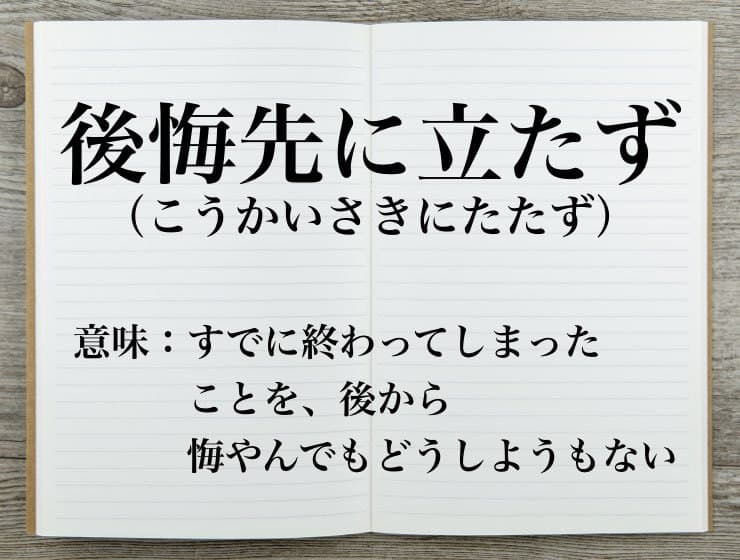 後悔先に立たず
（こうかいさきにたたず）
意味：すでに終わってしまった
ことを、後から
悔やんでもどうしようもない